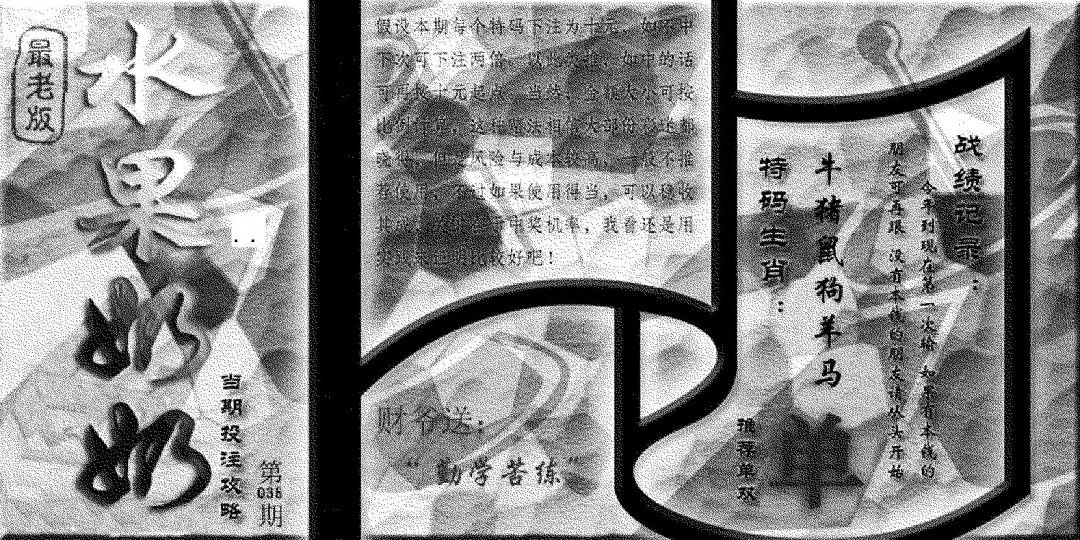 最老版
水果奶奶
当期投注攻略
第
036
期
假设本期每个特码下注为十元，如不中
下次可下注两倍，以此类推，如中的话
可再按十元起点，当然，金额大小可按
比例计算，这种赌法相信大部份彩迷都
晓得，但是风险与成本较高，一般不推
荐使用，不过如果使用得当，可以稳收
中奖机率，我看还是用
比较好吧！
财爷送：
“勤学苦练”
战绩记录：
今年到现在第一次输 如果有本钱的
朋友可再跟 没有本钱的朋友请从头开始
牛猪鼠狗羊马
特码生肖：
单
推荐单双